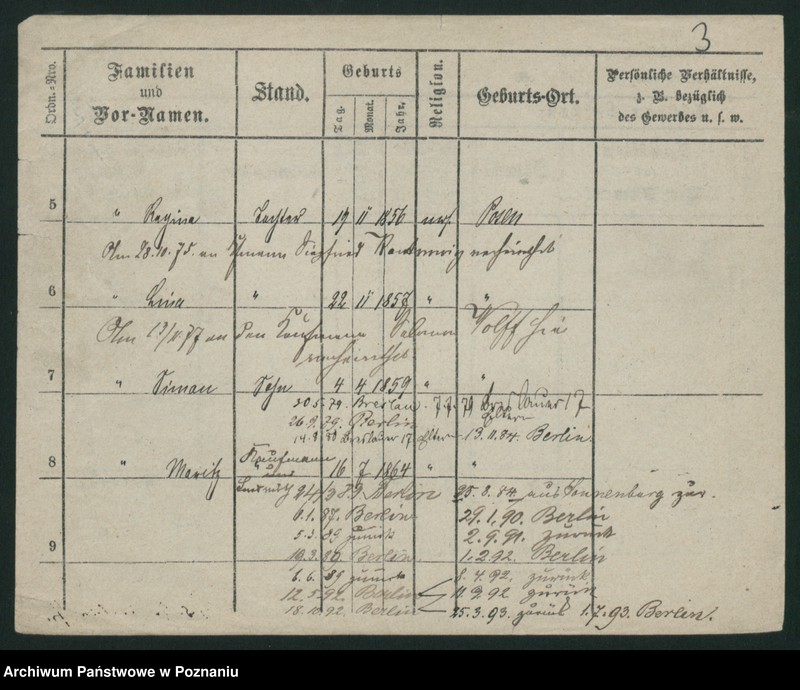 3
Ordn.-Nro.
Familien und Vor-Namen.
Stand.
Geburts
Tag.
Monat.
Jahr.
Religion.
Geburts-Ort.
Persönliche Verhältnisse, z. B. bezüglich des Gewerbes u. s. w.
5
" Regina Tochter 19 11 1856 mos. Posen
Am 28.10.75. an Siegfried verheirathet
6
" Lina " 22 11 1857 " "
Am an den Kaufmann Salomon Wolff hier
verheirathet
7
" Simon Sohn 4 4 1859 " "
30.5.79. Breslau. 7.7.79 Breslauer 17
Eltern
26.9.79. Berlin
Breslauer 17 Eltern 13.11.84. Berlin
8
" Moritz Kaufmann 16 7 1864 " "
Berlin 25.8.84. aus Sonnenburg zur.
6.1.87. Berlin 29.1.90. Berlin
5.3.89 zurück 2.9.91. zurück
9
19.3.89. Berlin 1.2.92. Berlin
6.6.89 zurück 8.4.92. zurück
12.5.92. Berlin 11.9.92 zurück
18.10.92. Berlin 25.3.93. zurück 1.7.93. Berlin.
Archiwum Państwowe w Poznaniu